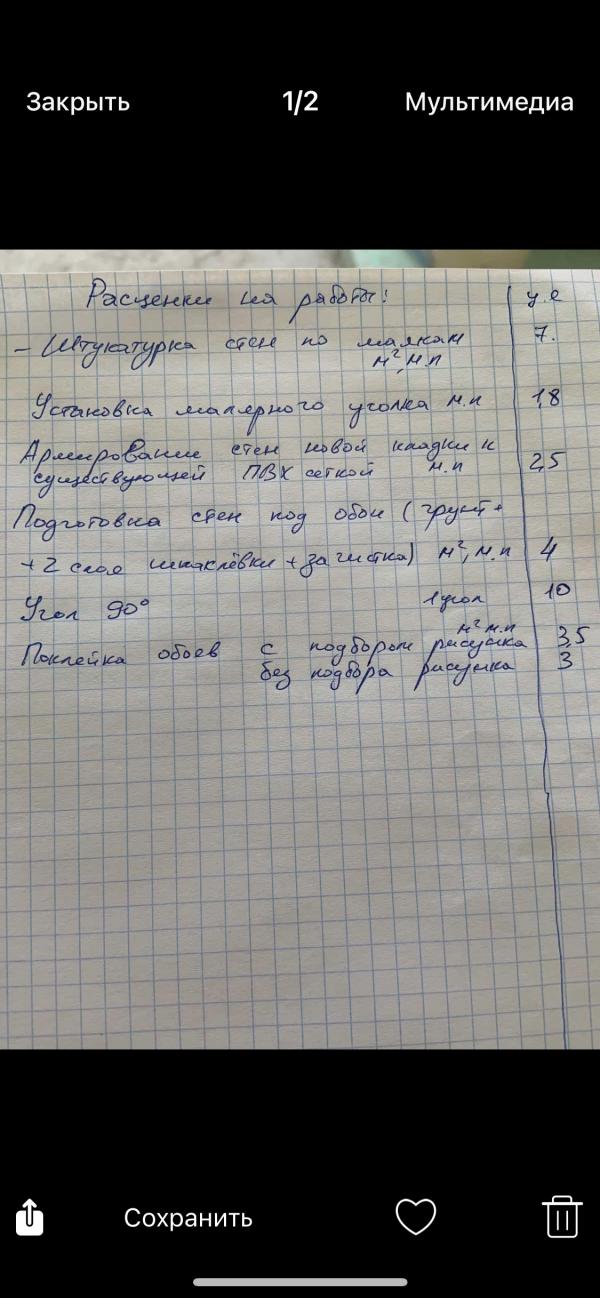 Закрыть 1/2 Мультимедиа
Расценки на работы: у.е
- Штукатурка стен по маякам 7.
м², м.п
Установка малярного уголка м.п 1,8
Армирование стен новой кладки к
существующей ПВХ сеткой м.п 2,5
Подготовка стен под обои (грунт+
+2 слоя шпаклёвки + зачистка) м², м.п 4
Угол 90° 1 угол 10
м² м.п
Поклейка обоев с подбором рисунка 3,5
без подбора рисунка 3
Сохранить